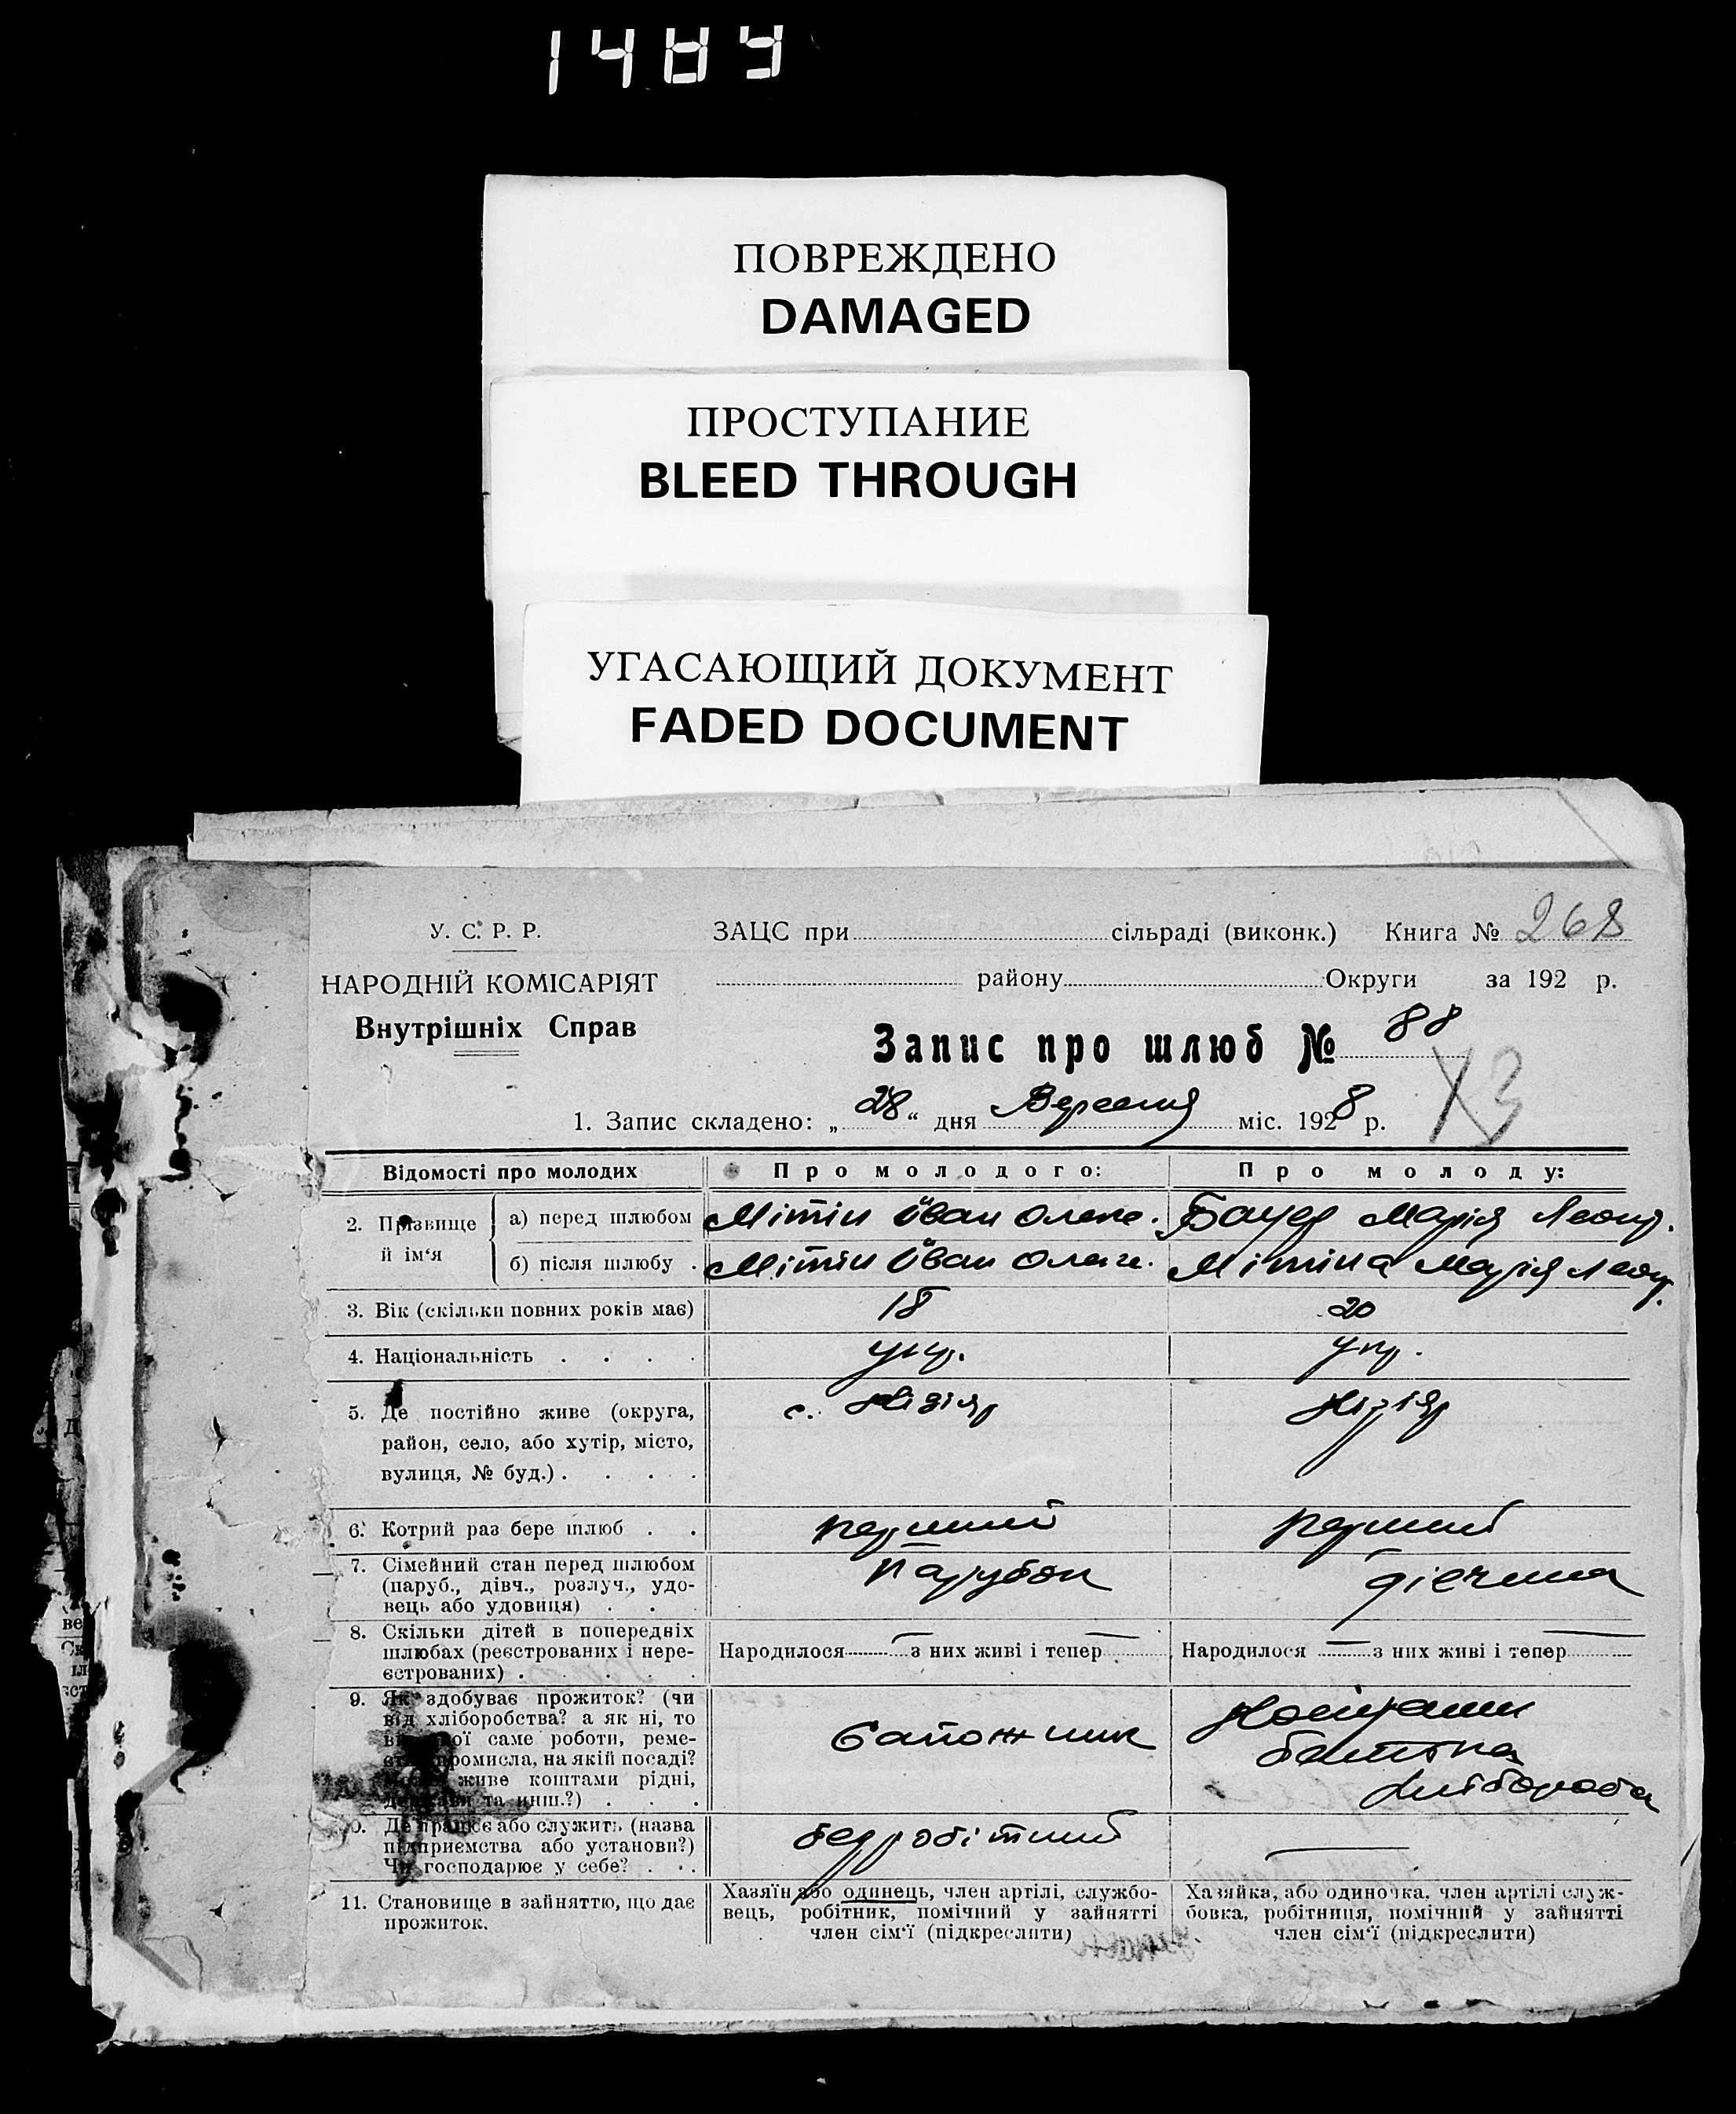 1489
ПОВРЕЖДЕНО
DAMAGED
ПРОСТУПАНИЕ
BLEED THROUGH
УГАСАЮЩИЙ ДОКУМЕНТ
FADED DOCUMENT
У. С. Р. Р.
НАРОДНІЙ КОМІСАРІЯТ
Внутрішніх Справ
ЗАЦС при сільраді (виконк.) Книга № 268
району Округи за 192 р.
Запис про шлюб № 88
1. Запис складено: „28“ дня Вересня міс. 1928 р.
Відомості про молодих Про молодого: Про молоду:
2. Прізвище й ім‘я
а) перед шлюбом Мітін Іван Олекс. Бауер Марія Леонт.
б) після шлюбу . Мітін Іван Олекс. Мітіна Марія Леонт.
3. Вік (скільки повних років має) 18 20
4. Національність . . . . укр. укр.
5. Де постійно живе (округа,
район, село, або хутір, місто,
вулиця, № буд.) . . . .
с.
6. Котрий раз бере шлюб . . перший перший
7. Сімейний стан перед шлюбом
(паруб., дівч., розлуч., удо-
вець або удовиця) . . .
Парубок дівчина
8. Скільки дітей в попередніх
шлюбах (реєстрованих і нере-
єстрованих) . . . . .
Народилося — з них живі і тепер — Народилося — з них живі і тепер —
9. Як здобуває прожиток? (чи
від хліборобства? а як ні, то
саме роботи, реме-
промисла, на якій посаді?
живе коштами рідні,
та инш.?) . . .
Сапожник
Коштами
батька
хлібороба
Де працює або служить (назва
підприємства або установи?)
Чи господарює у себе? . . .
безробітний —
11. Становище в зайняттю, що дає
прожиток.
Хазяїн або одинець, член артілі, службо-
вець, робітник, помічний у зайнятті
член сім‘ї (підкреслити)
Хазяйка, або одиночка, член артілі служ-
бовка, робітниця, помічний у зайнятті
член сім‘ї (підкреслити)